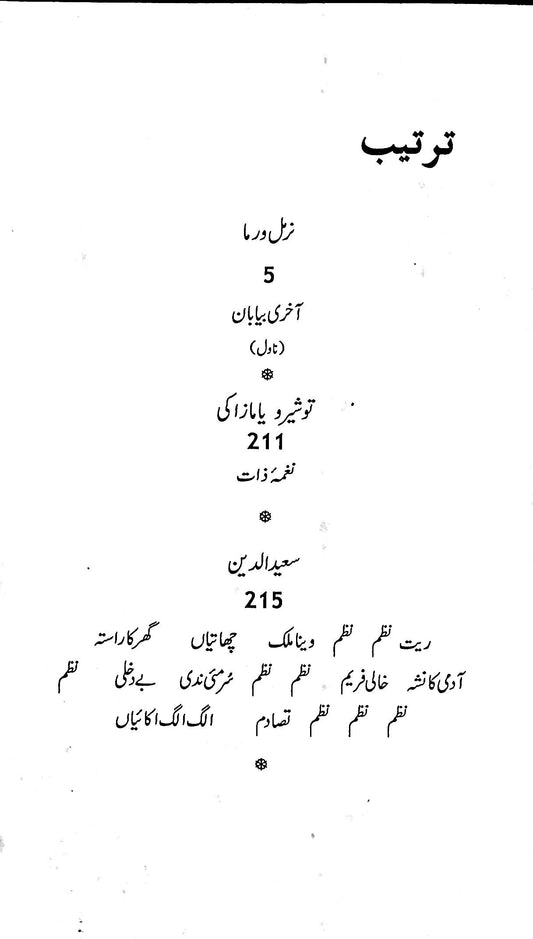 ترتیب
نرمل ورما
5
آخری بیابان
(ناول)
توشیرو یامازاکی
211
نغمۂ ذات
سعید الدین
215
ریت نظم نظم وینا ملک چھاتیاں گھر کا راستہ
آدمی کا نشہ خالی فریم نظم نظم سُرمئی ندی بے دخلی نظم
نظم نظم نظم تصادم الگ الگ اکائیاں